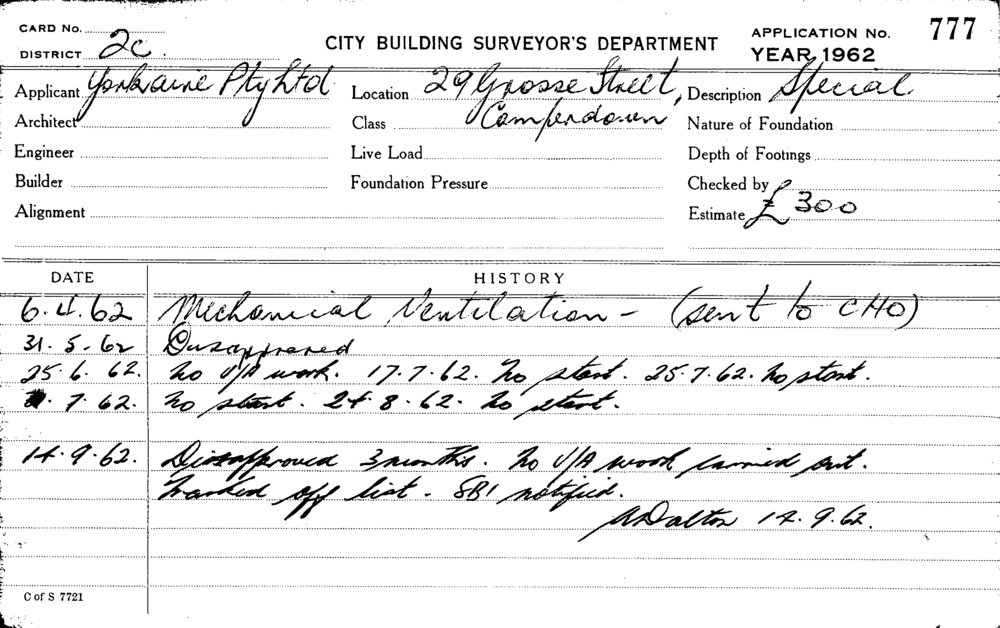 CARD No.
DISTRICT 2c.
CITY BUILDING SURVEYOR'S DEPARTMENT
APPLICATION No. 777
YEAR 1962
Applicant Yorkaine Pty Ltd
Location 29 Grosse Street,
Description Special
Architect
Class Camperdown
Nature of Foundation
Engineer
Live Load
Depth of Footings
Builder
Foundation Pressure
Checked by
Alignment
Estimate £300
DATE HISTORY
6.4.62 Mechanical Ventilation - (sent to CHO)
31.5.62 Disapproved
25.6.62. No U/A work. 17.7.62. No start. 25.7.62. No start.
7.62. No start. 24.8.62. No start.
14.9.62. Disapproved 3 months. No U/A work carried out.
Marked off list. SBI notified.
Dalton 14.9.62.
C of S 7721